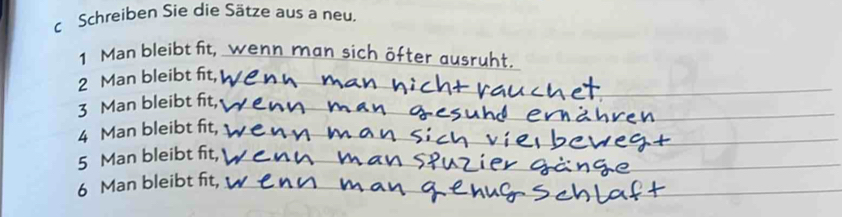 c Schreiben Sie die Sätze aus a neu.
1 Man bleibt fit, wenn man sich öfter ausruht.
2 Man bleibt fit, wenn man nicht rauchet.
3 Man bleibt fit, wenn man gesund ernähren
4 Man bleibt fit, wenn man sich viel bewegt
5 Man bleibt fit, wenn man spuzier gänge
6 Man bleibt fit, wenn man genug schlaft